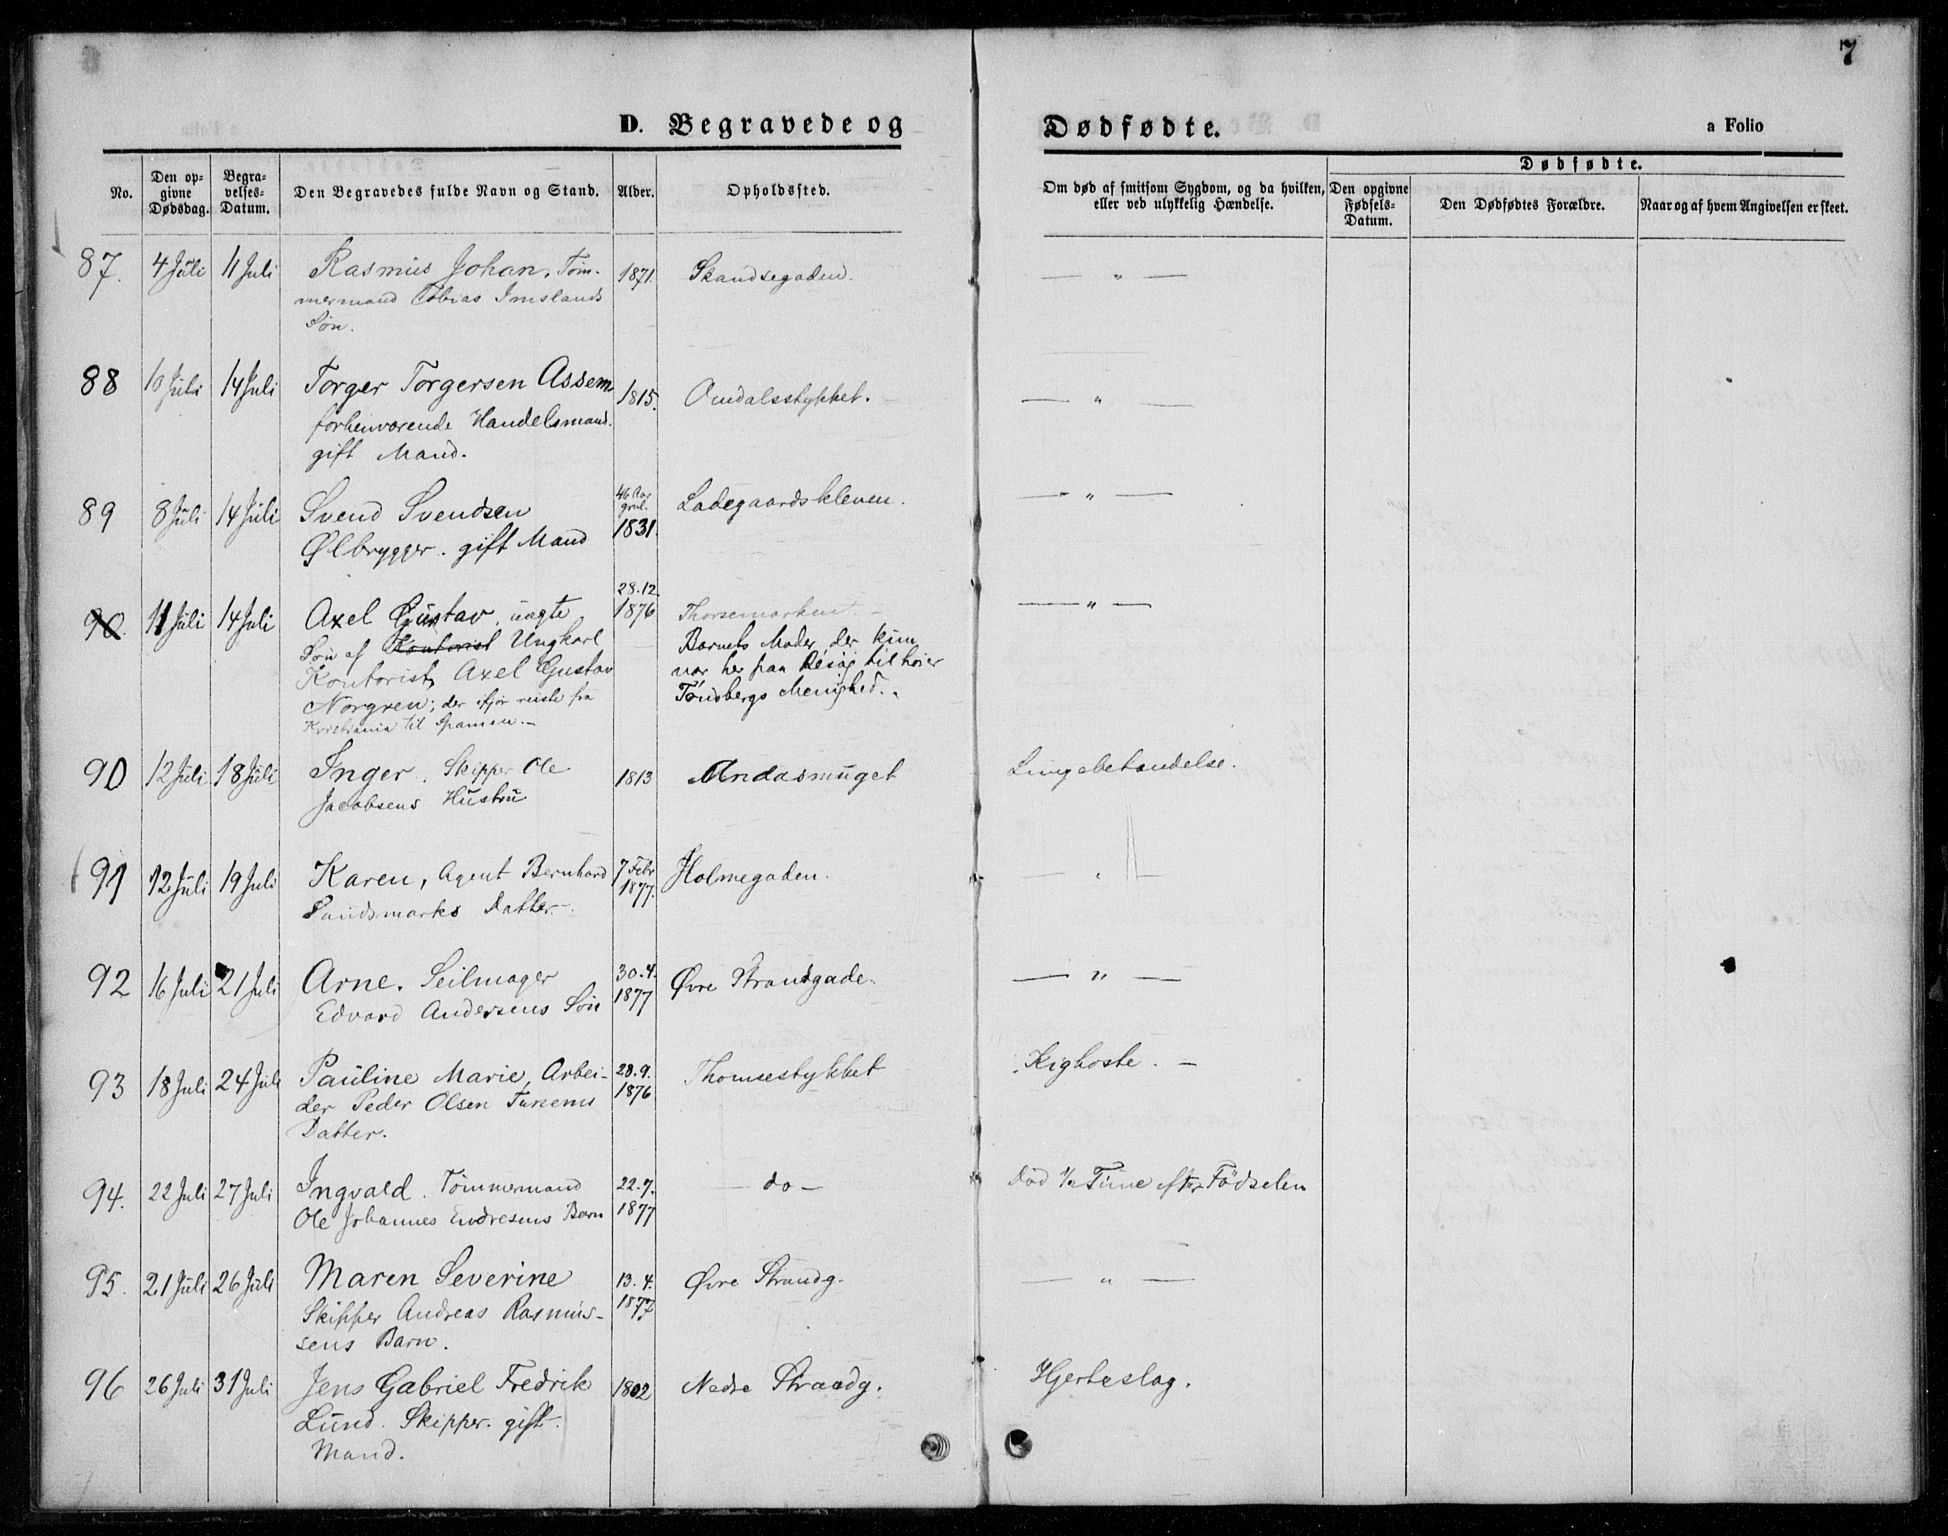 7
D. Begravede og Dødfødte.
a Folio
No.
Den opgivne Dødsdag.
Begravelses-Datum.
Den Begravedes fulde Navn og Stand.
Alder.
Opholdssted.
Om død af smitsom Sygdom, og da hvilken, eller ved ulykkelig Hændelse.
Dødfødte.
Den opgivne Fødsels-Datum.
Den Dødfødtes Forældre.
Naar og af hvem Angivelsen er skeet.
87. 4 Juli 11 Juli Rasmus Johan, Töm- 1871. Skandsegaden. — " —
mermand Tobias Imslands
Søn.
88 10 Juli 14 Juli Torger Torgersen Assem 1815. Omdalsstykket. — " —
forhenværende Handelsmand.
gift Mand.
89 8 Juli 14 Juli Svend Svendsen 46 Aar 1831. Ladegaardskleven. — " —
Ølbrygger. gift Mand
90. 11 Juli 14 Juli Axel Gustav, uægte 28.12 1876 Thorsemarken. — " —
Søn af Kontorist Ungkarl
Kontorist, Axel Gustav
Norgren; der ifjor reiste fra
Kristiania til Spanien. —
Barnets Moder, der kun
var her paa Besøg tilhører
Tønsbergs Menighed.
90 12 Juli 18 Juli Inger. Skipper Ole 1813 Andasmuget Lungebetændelse.
Jacobsens Hustru
91 12 Juli 19 Juli Karen, Agent Bernhard 7 Febr 1877. Holmegaden.
Sandsmarks Datter.
92 16 Juli 21 Juli Arne. Seilmager 30.4. 1877 Øvre Strandgade. — " —
Edvard Andersens Søn
93 18 Juli 24 Juli Pauline Marie, Arbei- 28.9. 1876 Thomsestykket Kighoste. —
der Peder Olsen Tunems
Datter.
94. 22 Juli 27 Juli Ingvald. Tömmermand 22.7. 1877 — do — Död 1/2 Time efter Födselen
Ole Johannes Endresens Barn
95. 21 Juli 26 Juli Maren Severine 13.4. 1877 Øvre Strandg. — " —
Skipper Andreas Rasmus-
sens Barn.
96 26 Juli 31 Juli Jens Gabriel Fredrik 1802 Nedre Strandg. Hjerteslag.
Lund. Skipper. gift.
Mand.